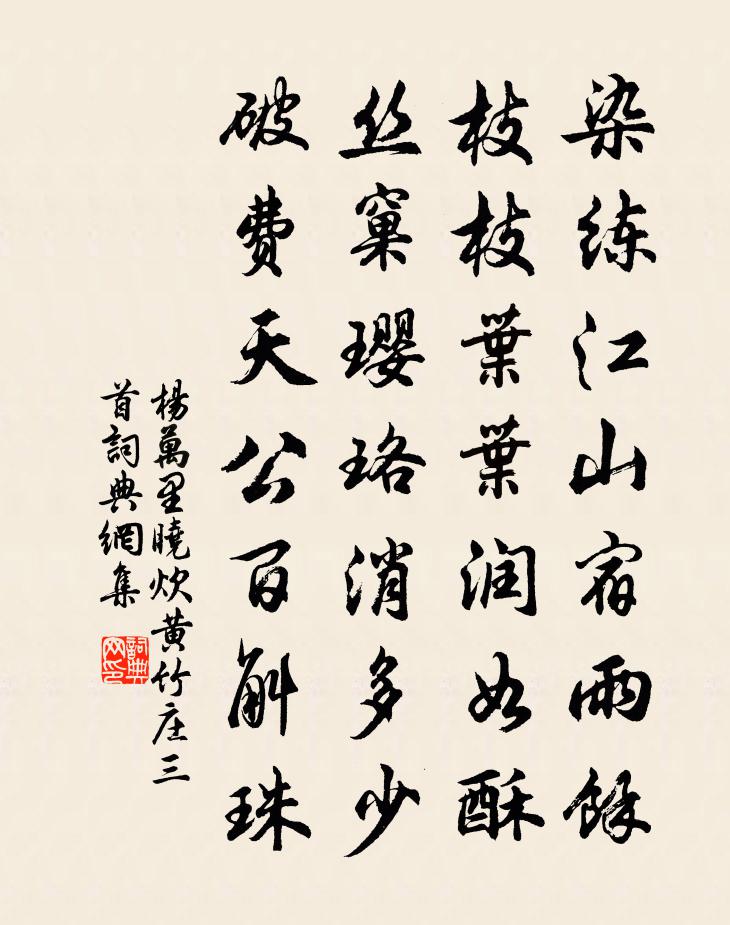 染练江山宿雨餘
枝枝葉葉润如酥
丝窠璎珞消多少
破費天公百斛珠
楊萬里曉炊黄竹庄三
首詞典網集
詞典网印